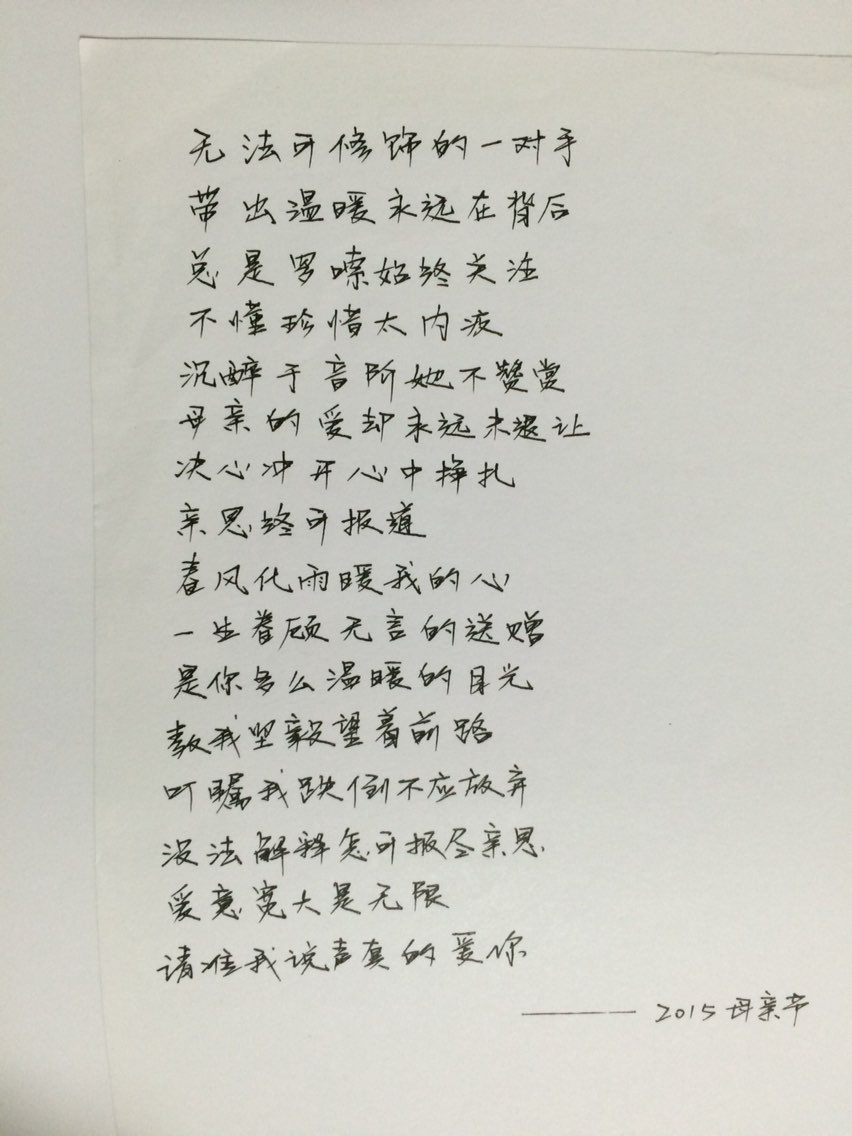 无法可修饰的一对手
带出温暖永远在背后
总是罗嗦始终关注
不懂珍惜太内疚
沉醉于音阶她不赞赏
母亲的爱却永远未退让
决心冲开心中挣扎
亲恩终可报道
春风化雨暖我的心
一生眷顾无言的送赠
是你多么温暖的目光
教我坚毅望着前路
叮嘱我跌倒不应放弃
没法解释怎可报尽亲恩
爱意宽大是无限
请准我说声真的爱你
——— 2015 母亲节